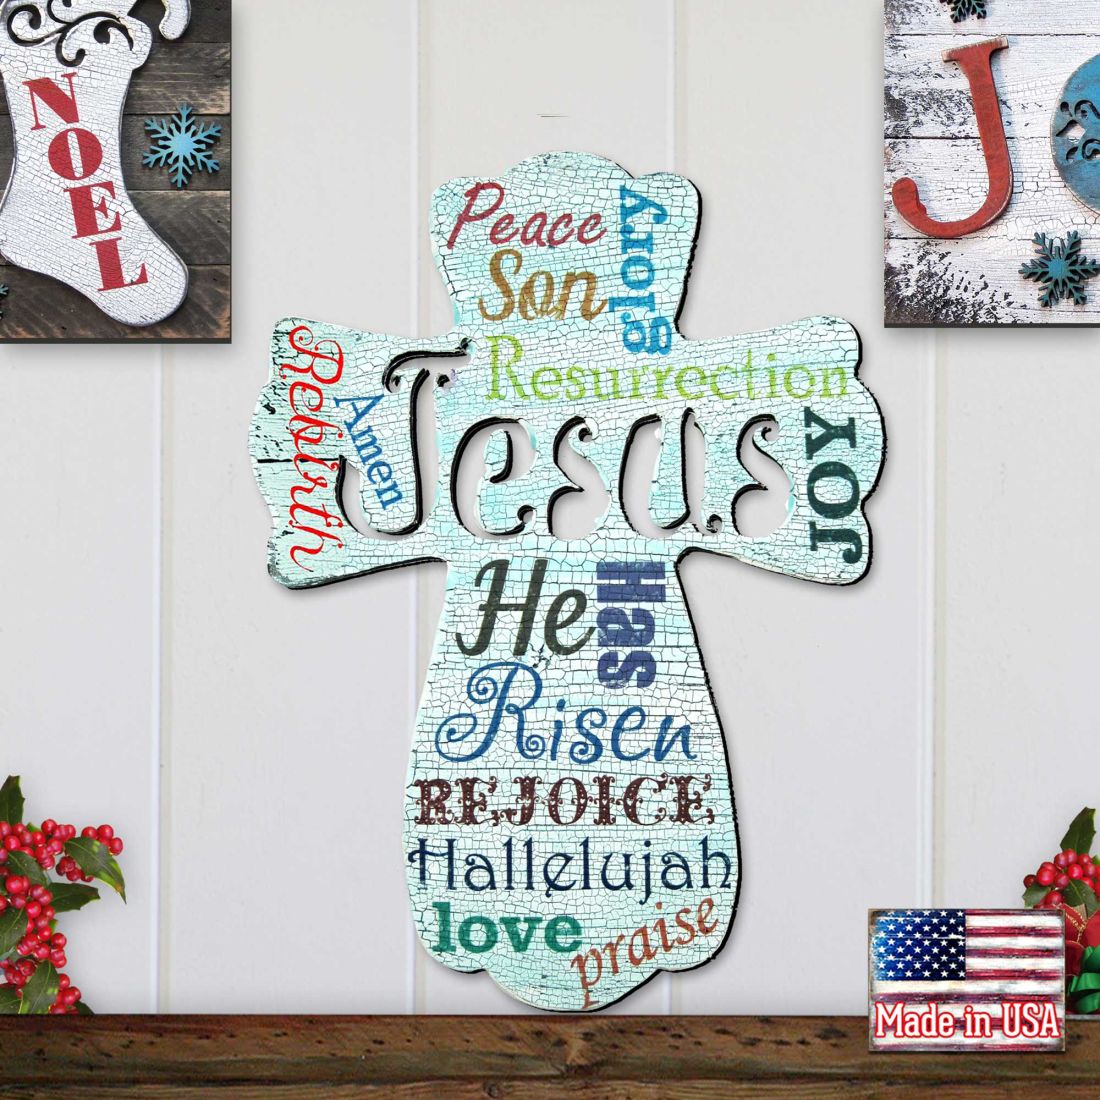 NOEL
J
Peace
glory
Son
Resurrection
Rebirth
Amen
Jesus
JOY
He
Has
Risen
REJOICE
Hallelujah
love
praise
Made in USA